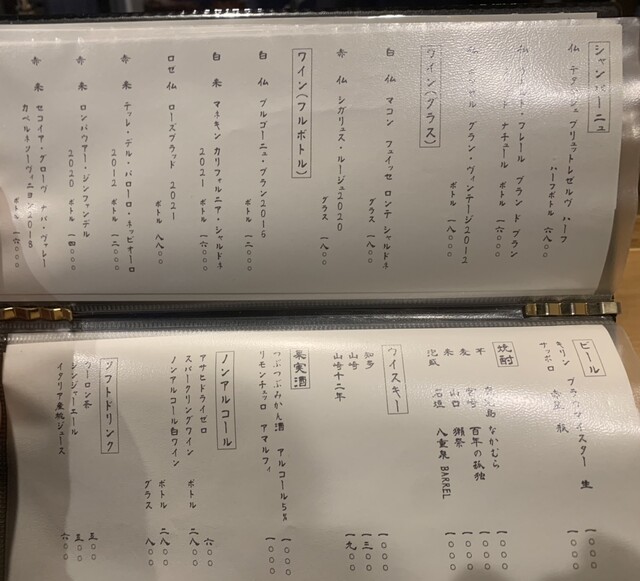 シャンパーニュ
仏 テタンジェ ブリュットレゼルヴ ハーフ
ハーフボトル 六八〇〇
フレール ブラン ド ブラン
ナチュール ボトル 一六〇〇〇
仏 グラン・ヴィンテージ2012
ボトル 一八〇〇〇
ワイン(グラス)
白 仏 マコン フュイッセ ロンテ シャルドネ
グラス 一八〇〇
赤 仏 シガリュス・ルージュ2020
グラス 一八〇〇
ワイン(フルボトル)
白 仏 ブルゴーニュ・ブラン2016
ボトル 一二〇〇〇
白 米 マネキン カリフォルニア・シャルドネ
2021 ボトル 一六〇〇〇
ロゼ 仏 ローズブラッド 2021
ボトル 八八〇〇
赤 テッレ・デル・バローロ・ネッビオーロ
2012 ボトル 一二〇〇〇
赤 米 ロンバウアー・ジンファンデル
2020 ボトル 一四〇〇〇
赤 米 セコイア・グローヴ ナパ・ヴァレー
カベルネソーヴィニヨン2018
ボトル 一六〇〇〇
ビール
キリン ブラウマイスター 生 一〇〇〇
サッポロ 赤星 瓶 一〇〇〇
焼酎
芋 なかむら 一〇〇〇
麦 宮崎 百年の孤独 一〇〇〇
米 山口 獺祭 一〇〇〇
泡盛 石垣 八重泉 BARREL 一〇〇〇
ウイスキー
知多 一〇〇〇
山崎 一三〇〇
山崎十二年 一九〇〇
果実酒
つぶつぶみかん酒 アルコール5% 一〇〇〇
リモンチェッロ アマルフィ 一〇〇〇
ノンアルコール
アサヒドライゼロ 六〇〇
スパークリングワイン ボトル 二八〇〇
ノンアルコール白ワイン ボトル 二八〇〇
グラス 八〇〇
ソフトドリンク
ウーロン茶 五〇〇
ジンジャーエール 五〇〇
イタリア産桃ジュース 六〇〇